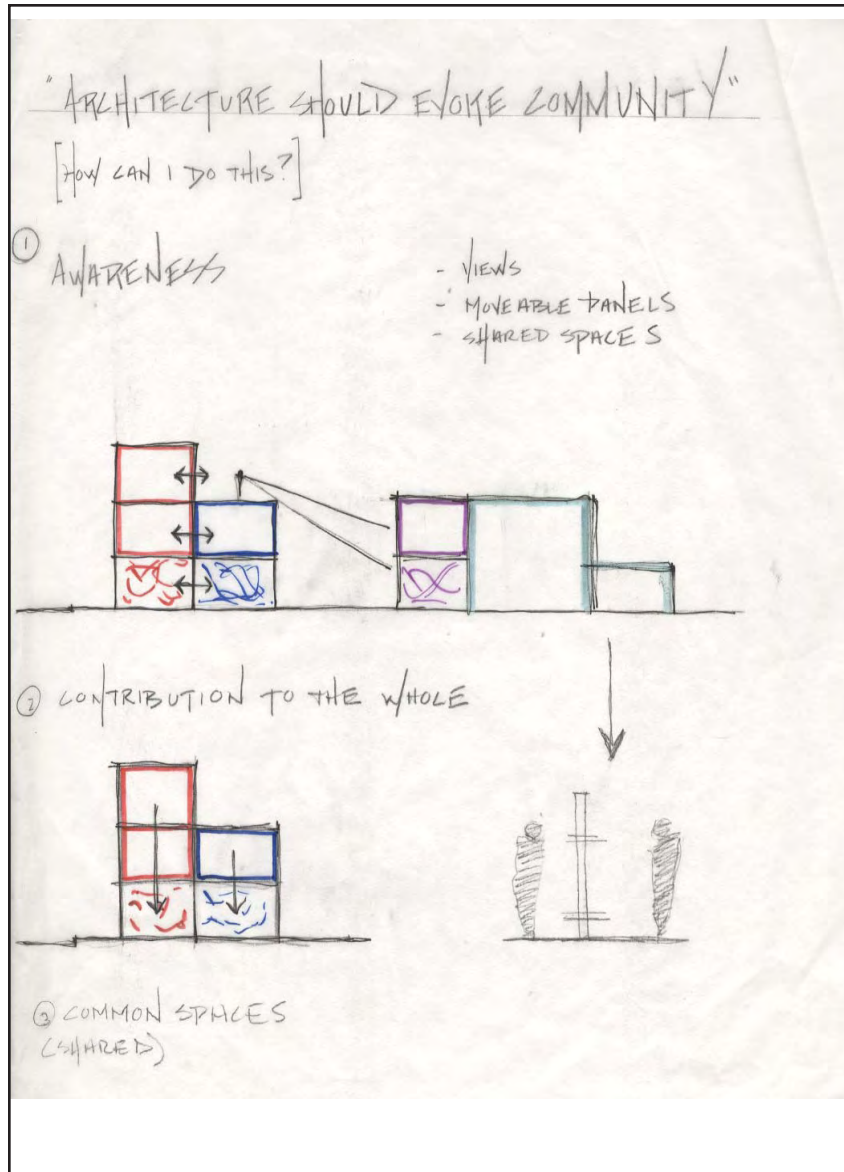 "ARCHITECTURE SHOULD EVOKE COMMUNITY"
[HOW CAN I DO THIS?]
① AWARENESS
- VIEWS
- MOVEABLE PANELS
- SHARED SPACES
② CONTRIBUTION TO THE WHOLE
③ COMMON SPACES
(SHARED)